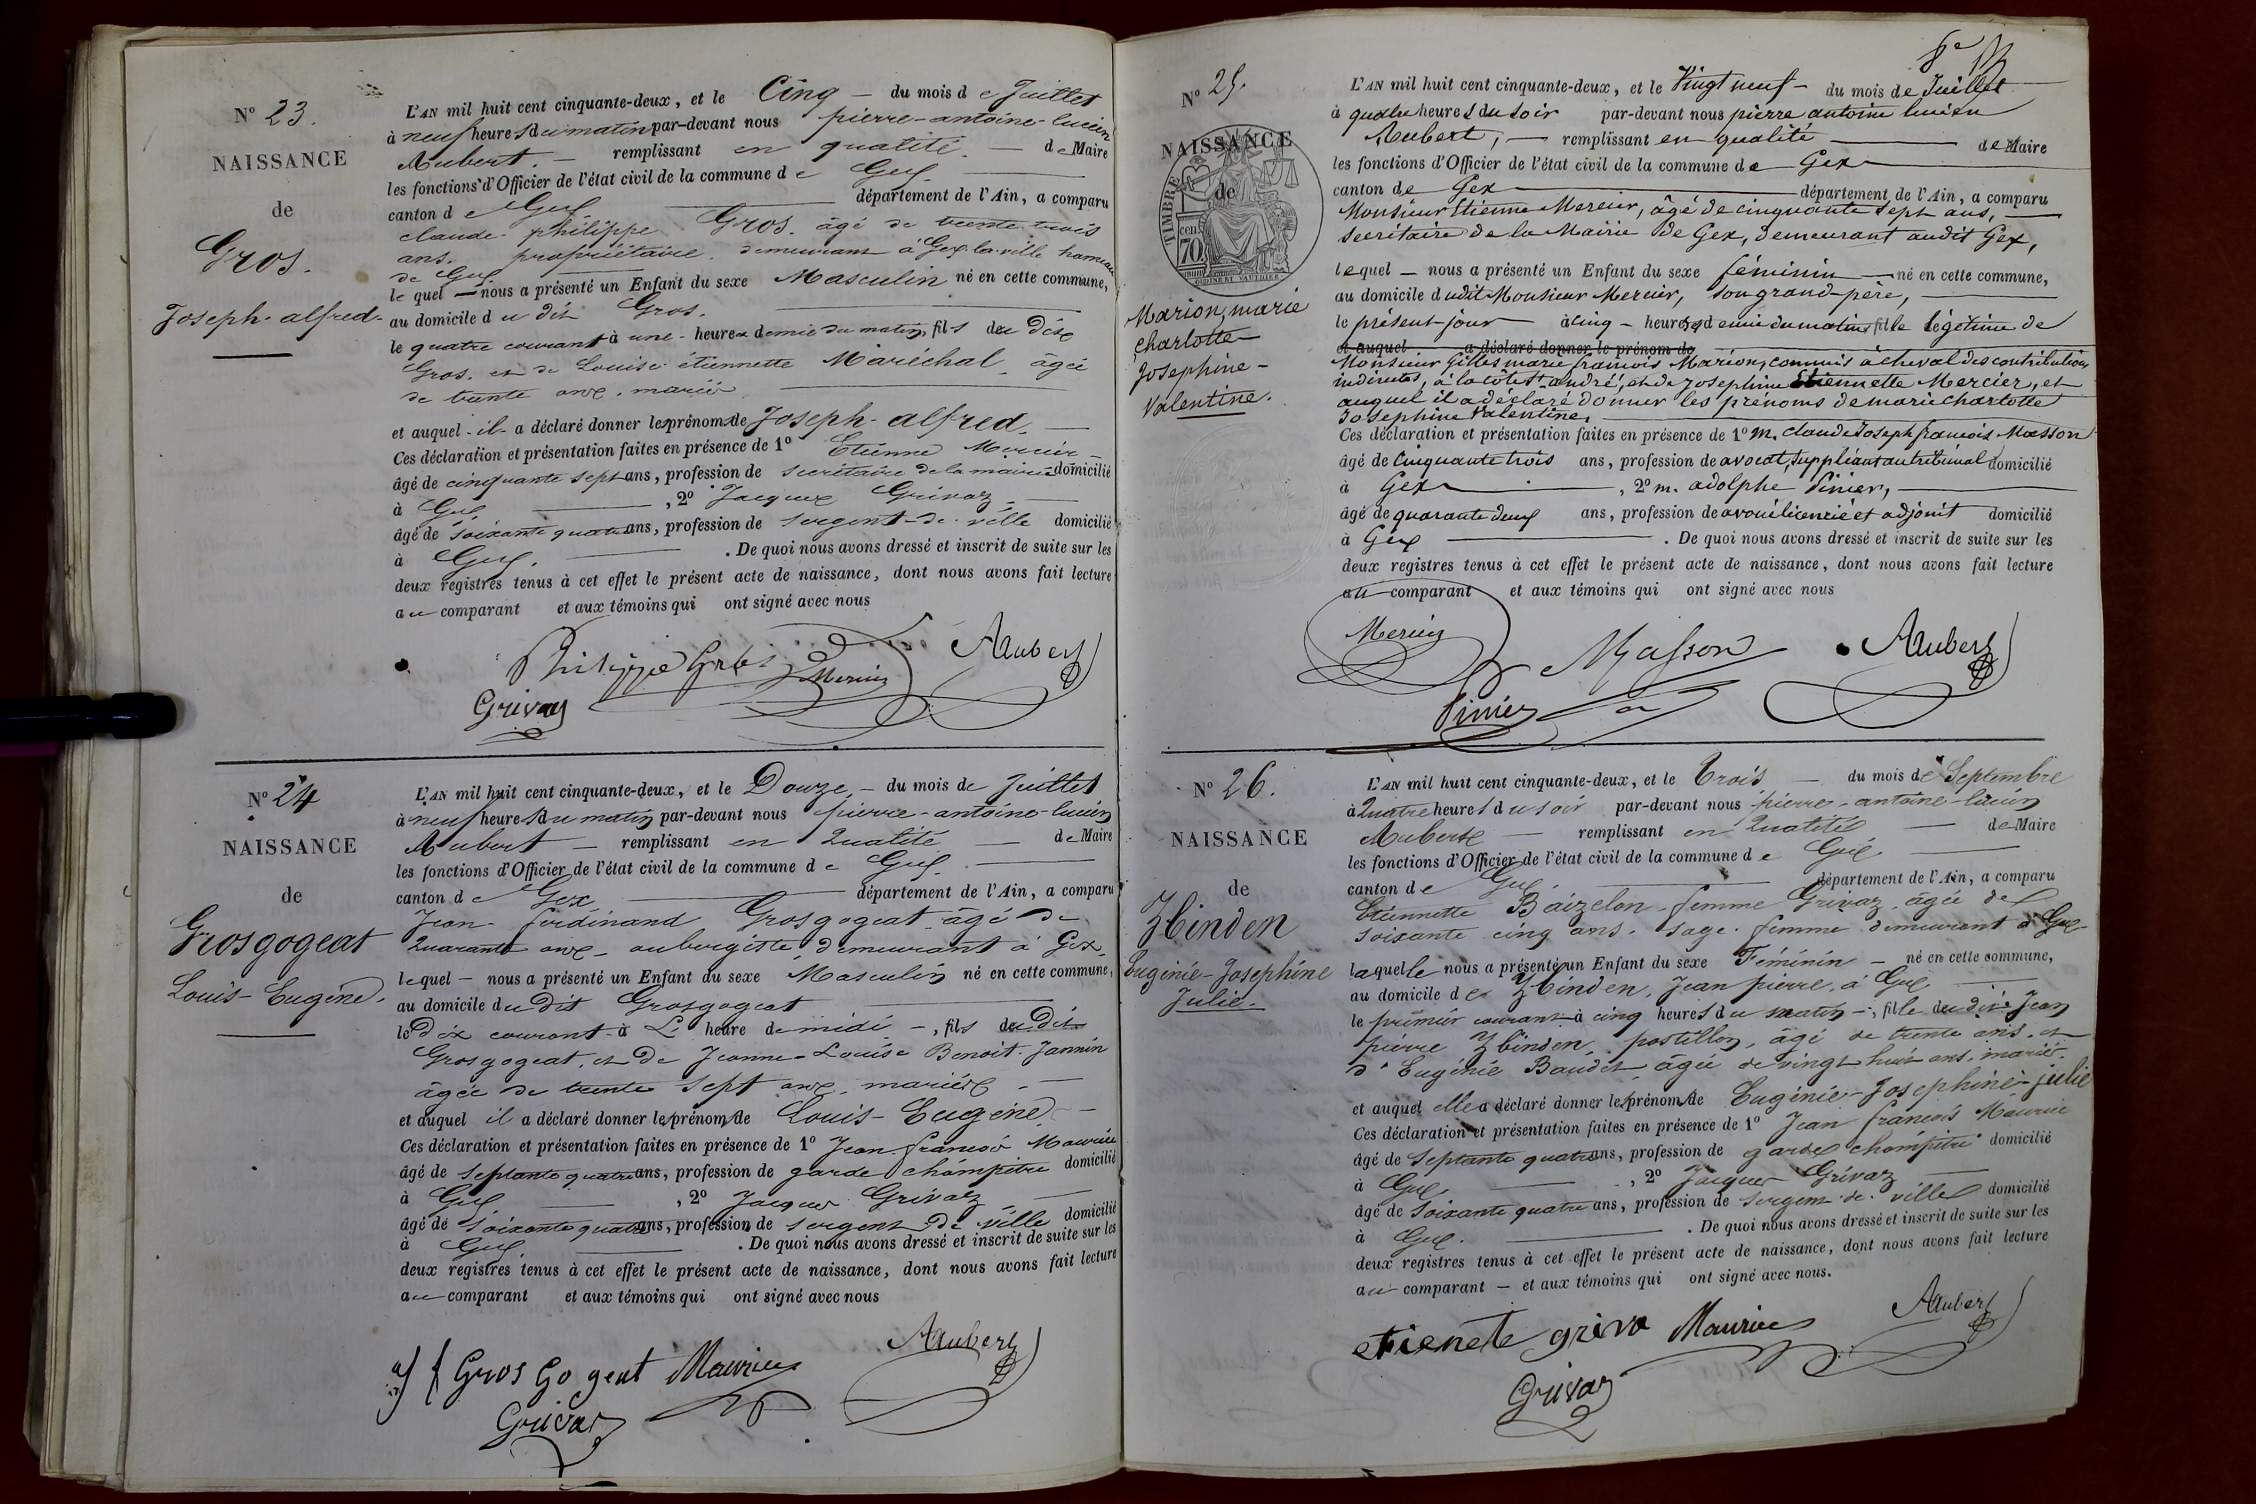 N° 23.
NAISSANCE
de
Gros.
Joseph-alfred.
L'AN mil huit cent cinquante-deux, et le Cinq — du mois de Juillet
à neuf heures du matin par-devant nous pierre-antoine-lucien
Aubert. — remplissant en qualité. — de Maire
les fonctions d'Officier de l'état civil de la commune de Gex.
canton de Gex département de l'Ain, a comparu
claude philippe Gros. âgé de trente trois
ans. propriétaire. demeurant à Gex-la-ville hameau
de Gex
le quel — nous a présenté un Enfant du sexe Masculin né en cette commune,
au domicile du dit Gros.
le quatre courant à une heure & demie du matin, fils du dit
Gros. et de Louise étiennette Maréchal. âgée
de trente ans. mariés
et auquel il a déclaré donner les prénoms de Joseph-alfred. —
Ces déclaration et présentation faites en présence de 1° Etienne Mercier —
âgé de cinquante sept ans, profession de secrétaire de la mairie domicilié
à Gex , 2° Jacques Grivaz —
âgé de soixante quatre ans, profession de sergent-de-ville domicilié
à Gex. . De quoi nous avons dressé et inscrit de suite sur les
deux registres tenus à cet effet le présent acte de naissance, dont nous avons fait lecture
au comparant et aux témoins qui ont signé avec nous
Philippe Gros Mercier AAubert
Grivaz
N° 24
NAISSANCE
de
Grosgogeat
Louis-Eugène.
L'AN mil huit cent cinquante-deux, et le Douze — du mois de Juillet
à neuf heures du matin par-devant nous pierre-antoine-lucien
Aubert — remplissant en Qualité — de Maire
les fonctions d'Officier de l'état civil de la commune de Gex.
canton de Gex département de l'Ain, a comparu
Jean-ferdinand Grosgogeat âgé de
Quarante ans — aubergiste, demeurant à Gex,
lequel — nous a présenté un Enfant du sexe Masculin né en cette commune,
au domicile du Dit Grosgogeat
le Dix courant à L' heure de midi —, fils du Dit
Grosgogeat, et de Jeanne-Louise Benoit-Jannin
âgée de trente sept ans, mariés —
et auquel il a déclaré donner les prénoms de Louis-Eugène —
Ces déclaration et présentation faites en présence de 1° Jean-francois Maurice
âgé de septante quatre ans, profession de garde champêtre domicilié
à Gex , 2° Jacques Grivaz
âgé de soixante quatre ans, profession de sergent de ville domicilié
à Gex . De quoi nous avons dressé et inscrit de suite sur les
deux registres tenus à cet effet le présent acte de naissance, dont nous avons fait lecture
au comparant et aux témoins qui ont signé avec nous
Gros Go geat Maurice AAubert
Grivaz
8e
N° 25.
NAISSANCE
de
TIMBRE
cen. 70.
Marion, marie
charlotte
Josephine-
Valentine.
L'AN mil huit cent cinquante-deux, et le Vingt neuf — du mois de Juillet
à quatre heures du soir par-devant nous pierre antoine lucien
Aubert, — remplissant en qualité de Maire
les fonctions d'Officier de l'état civil de la commune de Gex
canton de Gex département de l'Ain, a comparu
Monsieur Etienne Mercier, âgé de cinquante sept ans,
secrétaire de la Mairie de Gex, demeurant audit Gex,
lequel — nous a présenté un Enfant du sexe féminin — né en cette commune,
au domicile dudit Monsieur Mercier, son grand-père,
le présent-jour à cinq heures & demie du matin fille légitime de
et auquel a déclaré donner le prénom de
Monsieur Gilles marie francois Marion, commis à cheval des contributions
indirectes, à la côte St andré, et de Josephine Etiennette Mercier, et
auquel il a déclaré donner les prénoms de marie charlotte
Josephine Valentine.
Ces déclaration et présentation faites en présence de 1° M. Claude Joseph francois Masson
âgé de Cinquante trois ans, profession de avocat, suppléant au tribunal domicilié
à Gex , 2° m. adolphe Pinier,
âgé de quarante deux ans, profession de avoué licencié et adjoint domicilié
à Gex . De quoi nous avons dressé et inscrit de suite sur les
deux registres tenus à cet effet le présent acte de naissance, dont nous avons fait lecture
au comparant et aux témoins qui ont signé avec nous
Mercier Masson AAubert
Pinier
N° 26.
NAISSANCE
de
Zbinden
Eugénie-Josephine
Julie.
L'AN mil huit cent cinquante-deux, et le Trois — du mois de Septembre
à Quatre heures du soir par-devant nous pierre-antoine-lucien
Aubert — remplissant en Qualité — de Maire
les fonctions d'Officier de l'état civil de la commune de Gex
canton de Gex. département de l'Ain, a comparu
Etiennette Baizelon femme Grivaz, âgée de
soixante cinq ans. sage-femme demeurant à Gex
laquelle nous a présenté un Enfant du sexe Féminin — né en cette commune,
au domicile de Zbinden, Jean pierre, à Gex
le premier courant à cinq heures du matin —, fille du dit Jean
pierre Zbinden, postillon, âgé de trente ans, et
d'Eugénie Baudet, âgée de vingt huit ans, mariés.
et auquel elle a déclaré donner les prénoms de Eugénie-Josephine-julie
Ces déclaration et présentation faites en présence de 1° Jean francois Maurice
âgé de Septante quatre ans, profession de garde champêtre domicilié
à Gex , 2° Jacques Grivaz
âgé de soixante quatre ans, profession de sergent-de-ville domicilié
à Gex. . De quoi nous avons dressé et inscrit de suite sur les
deux registres tenus à cet effet le présent acte de naissance, dont nous avons fait lecture
au comparant — et aux témoins qui ont signé avec nous.
etienete griva Maurice AAubert
Grivaz